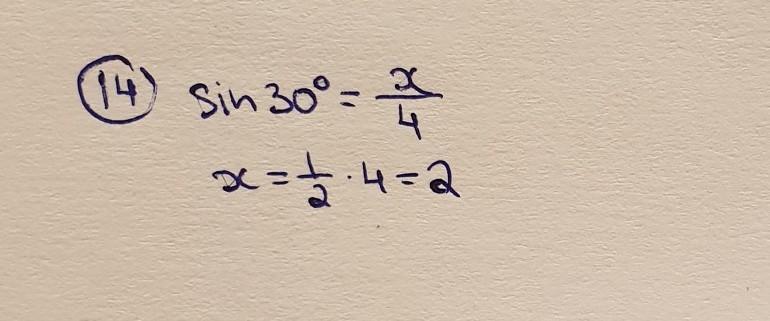 14 sin 30° = x/4
x = 1/2 · 4 = 2